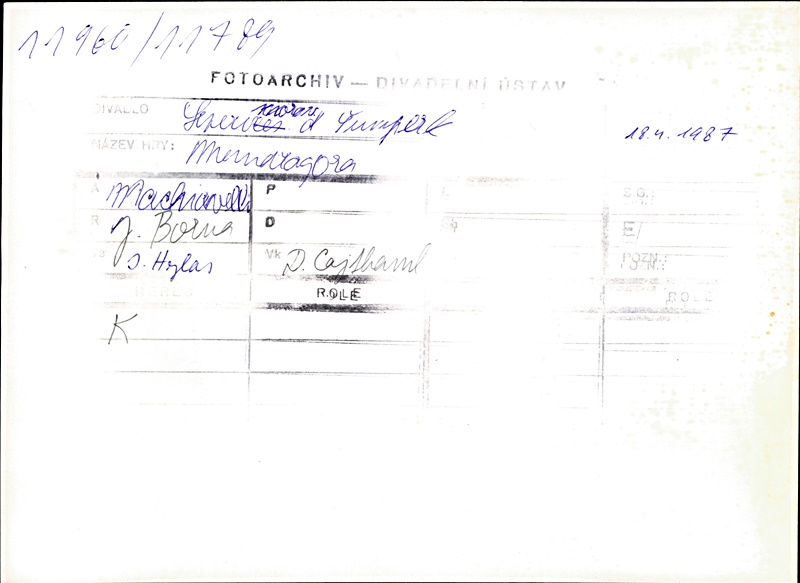 11960/11789
FOTOARCHIV — DIVADELNÍ ÚSTAV
DIVADLO Severomor d Šumperk 18.4.1987
NÁZEV HRY: Mandragora
A Machiavelli P
R J. Borna D E/
J. Hylas Vk D. Cajthaml POZN.:
ROLE ROLE
K